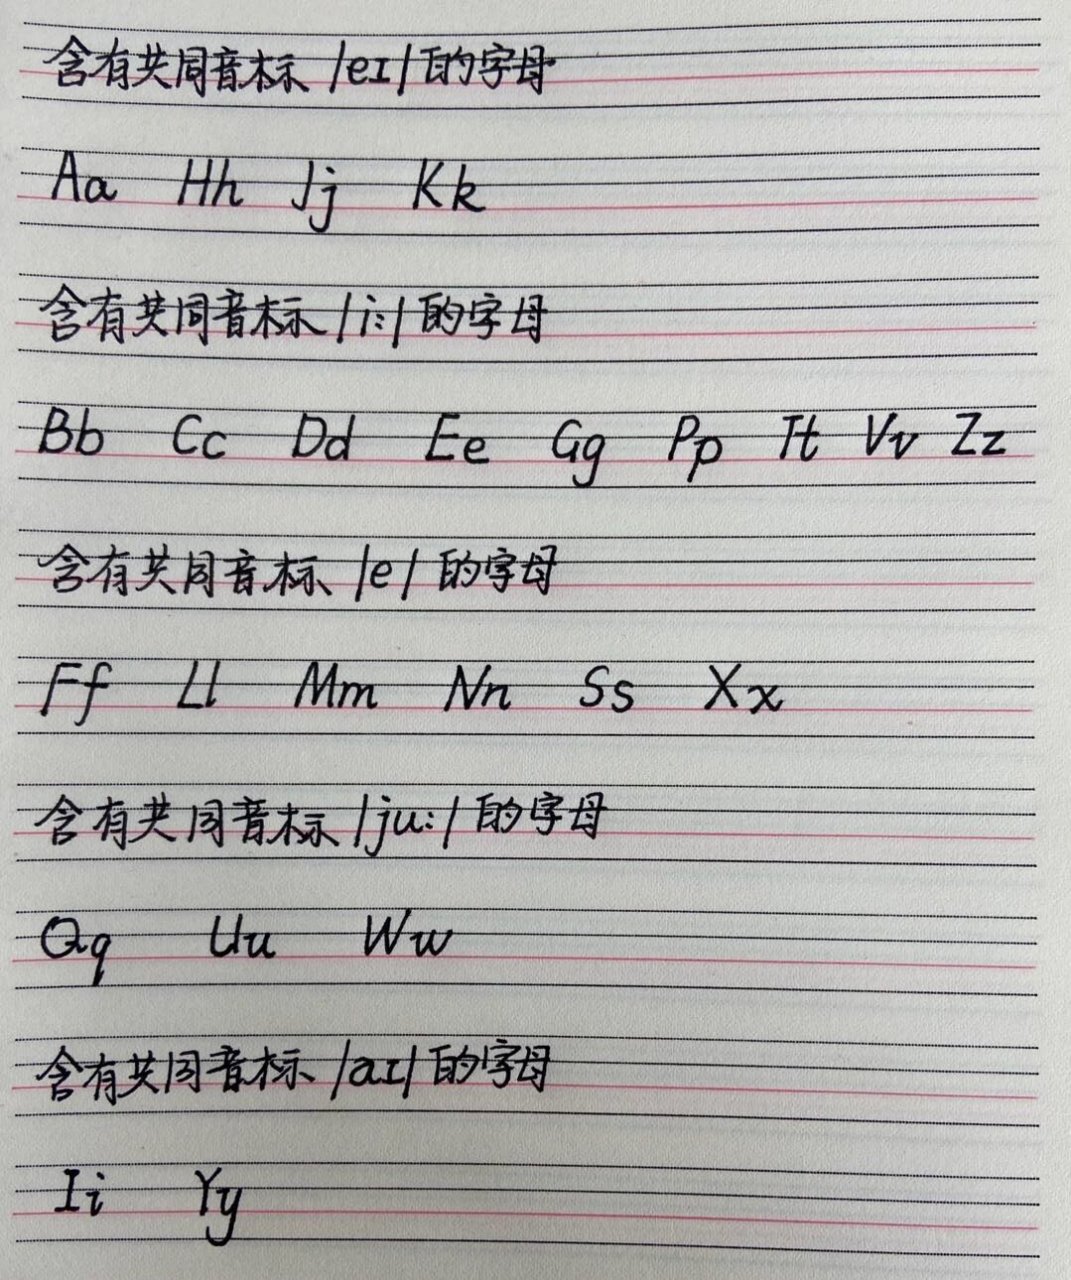 含有共同音标 /eɪ/ 的字母
Aa Hh Jj Kk
含有共同音标 /i:/ 的字母
Bb Cc Dd Ee Gg Pp Tt Vv Zz
含有共同音标 /e/ 的字母
Ff Ll Mm Nn Ss Xx
含有共同音标 /ju:/ 的字母
Qq Uu Ww
含有共同音标 /aɪ/ 的字母
Ii Yy